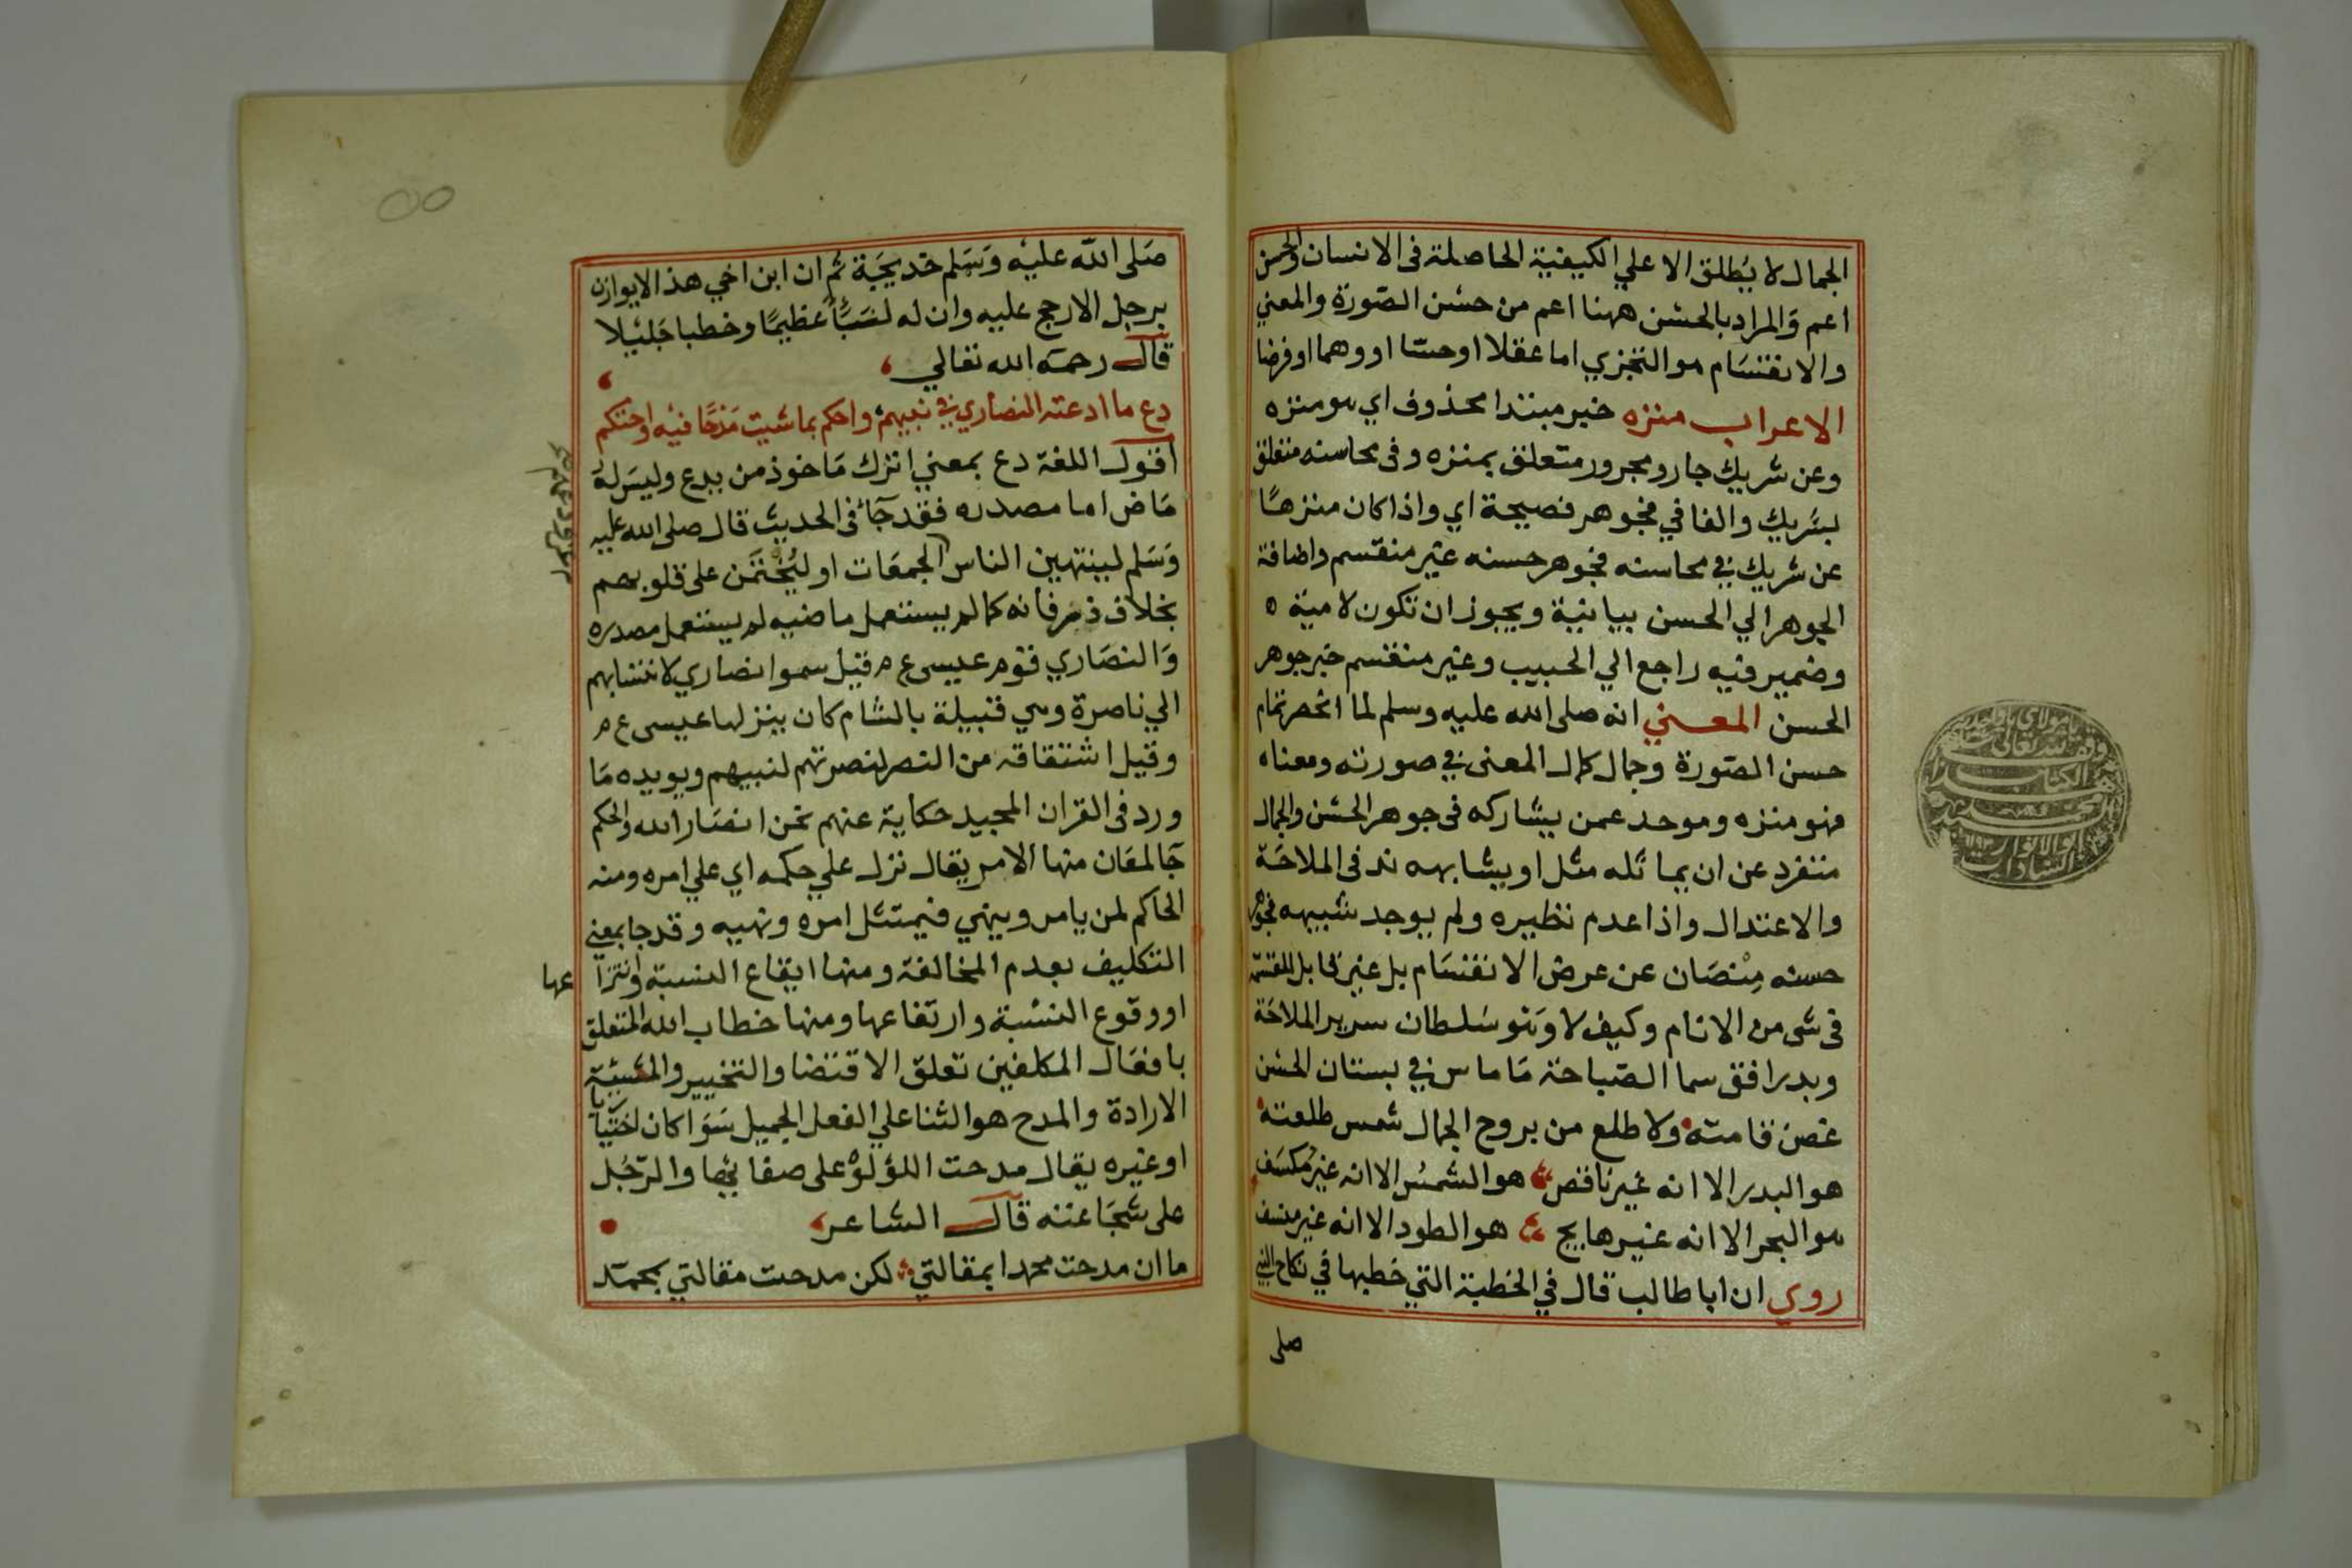 الجمال لا يُطلق الا علي الكيفية الحاصلة فى الانسان والحسن
اعم وَالمراد بالحسْن ههنا اعم من حسْن الصّورة والمعني
والانقسَام هو التجزي اما عقلا او حسّا او وهما او فرضا
الاعراب منزه خبر مبتدا محذوف اي هو منزه
وعن شريك جار ومجرور متعلق بمنزه وفى محاسنه متعلق
بشريك والفا في فجوهر فصيحة اي واذا كان منزهًا
عن شريك في محاسنه فجوهر حسنه غير منقسم واضافة
الجوهر الي الحسن بيانية ويجوز ان تكون لامية ه
وضمير فيه راجع الي الحبيب وغير منقسم خبر جوهر
الحسن المعني انه صلى الله عليه وسلم لما انحصر تمام
حسن الصّورة وجمال كمال المعنى في صورته ومعناه
فهو منزه وموحد عمن يشاركه فى جوهر الحسْن والجمال
متفرد عن ان يماثله مثل او يشابهه ند فى الملاحَة
والاعتدال واذا عدم نظيره ولم يوجد شبيهه فجوهر
حسنه مِنْصَان عن عرض الانقسَام بل غير قابل للقسمة
فى شى من الانام وكيف لا وَهو سُلطان سرير الملاحَة
وبدر افق سما الصّباحة مَا ماس في بستان الحسْن
غصن قامته ولا طلع من بروج الجمال شمس طلعته
هو البدر الا انه غير ناقص هو الشمسُ الا انه غير مُكسَف
هو البحر الا انه غير هايج هو الطود الا انه غير منسف
روي ان ابا طالب قال في الخطبة التي خطبها في نكاح النبي
صلى
صَلى الله عليْه وَسَلم خديجَة ثم ان ابن اخي هذا لا يوازن
برجل الا رجح عليه وان له لنسَبًا عظيمًا وخطبا جَليْلا
قال رحمه الله تعالي
دع ما ادعته النصاري في نبيهم واحكم بما شيت مَدْحًا فيْه واحتكم
اقول اللغة دع بمعني اترك مَاخوذ من يدع وليسَ لهُ
مَاض اما مصدره فقد جَآء فى الحديث قال صلى الله عليه
وَسَلم لينتهين الناس الجمعَات او ليُختَمَن على قلوبهم
بخلاف ذر فانه كما لم يستعمل ماضيه لم يستعمل مصدره
وَالنصَاري قوم عيسى ع م قيل سموا نصاري لانتسابهم
الي ناصرة وهي قبيلة بالشام كان ينزلها عيسى ع م
وقيل اشتقاقه من النصر لنصرتهم لنبيهم ويويده مَا
ورد فى القران المجيد حكاية عنهم نحن انصَار الله والحكم
جَا لمعَان منها الامر يقال نزل علي حكمه اي علي امره ومنه
الحاكم لمن يامر وينهي فيمتثل امره ونهيه وقد جا بمعني
التكليف بعدم المخالفة ومنها ايقاع النسبة وانتزا عها
او وقوع النسْبة وارتفاعها ومنها خطاب الله المتعلق
بافعَال المكلفين تعلق الاقتضا والتخيير والمشيئة
الارادة والمدح هو الثنا علي الفعل الجميل سَوَا كان اختيا
او غيره يقال مدحت اللؤلؤ على صفائها والرّجُل
على شجَاعته قال الشاعر
ما ان مدحت محمدا بمقالتي لكن مدحت مقالتي بمحمّد